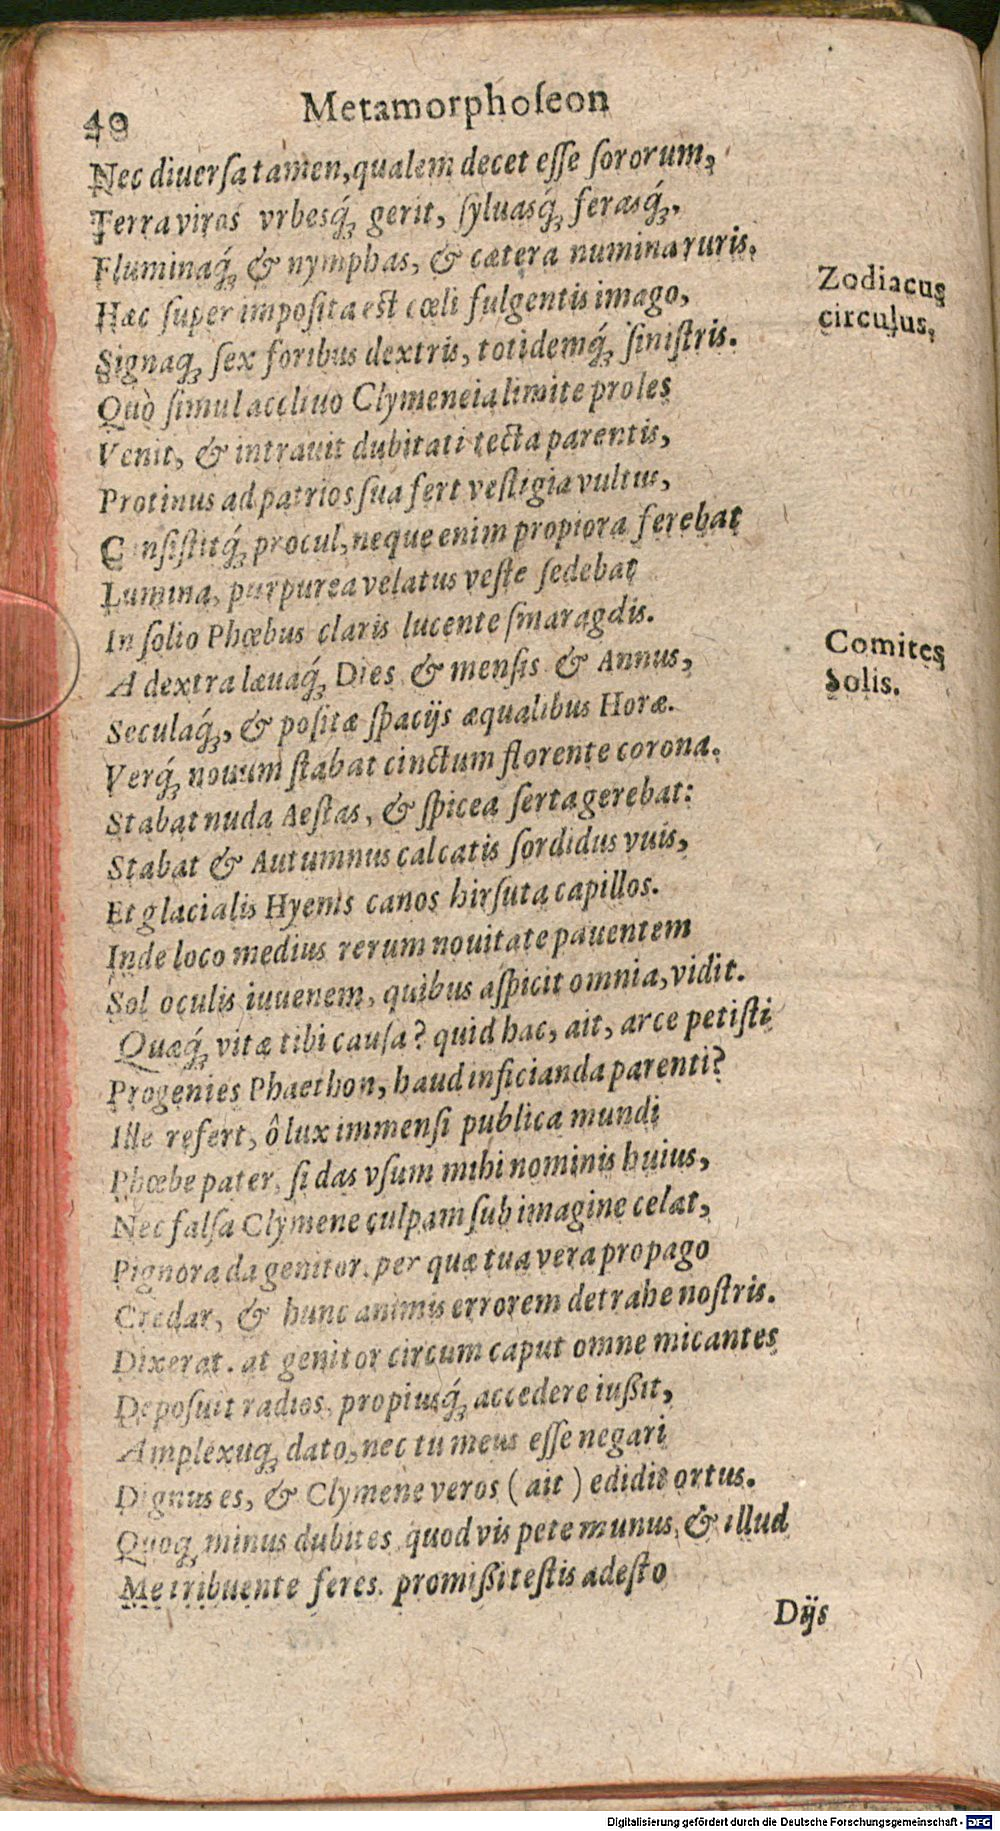 40
Metamorphoſeon
Nec diuerſa tamen, qualem decet eſſe ſororum,
Terra viros vrbesq́ꝫ gerit, ſyluasq́ꝫ ferasq́ꝫ,
Fluminaq́ꝫ & nymphas, & cætera numina ruris.
Hæc ſuper impoſita eſt cœli fulgentis imago,
Signaqꝫ ſex foribus dextris, totidemq́ꝫ ſiniſtris.
Zodiacus
circulus,
Quò ſimul accliuo Clymeneia limite proles
Venit, & intrauit dubitati tecta parentis,
Protinus ad patrios ſua fert veſtigia vultus,
Conſiſtitq́ꝫ procul, neque enim propiora ferebat
Lumina, purpurea velatus veſte ſedebat
In ſolio Phœbus claris lucente ſmaragdis.
A dextra læuaq́ꝫ Dies & menſis & Annus,
Comites
Solis.
Seculaq́ꝫ, & poſitæ ſpacijs æqualibus Horæ.
Verq́ꝫ nouum ſtabat cinctum florente corona.
Stabat nuda Aeſtas, & ſpicea ſerta gerebat:
Stabat & Autumnus calcatis ſordidus vuis,
Et glacialis Hyems canos hirſuta capillos.
Inde loco medius rerum nouitate pauentem
Sol oculis iuuenem, quibus aſpicit omnia, vidit.
Quæq́ꝫ vitæ tibi cauſa? quid hac, ait, arce petiſti
Progenies Phaethon, haud inficianda parenti?
Ille refert, ô lux immenſi publica mundi
Phœbe pater, ſi das vſum mihi nominis huius,
Nec falſa Clymene culpam ſub imagine celat,
Pignora da genitor, per quæ tua vera propago
Credar, & hunc animis errorem detrahe noſtris.
Dixerat. at genitor circum caput omne micantes
Depoſuit radios, propiusq́ꝫ accedere iußit,
Amplexuqꝫ dato, nec tu meus eſſe negari
Dignus es, & Clymene veros (ait) edidit ortus.
Quoqꝫ minus dubites, quod vis pete munus, & illud
Me tribuente feres. promißi teſtis adeſto
Dijs
Digitalisierung gefördert durch die Deutsche Forschungsgemeinschaft - DFG